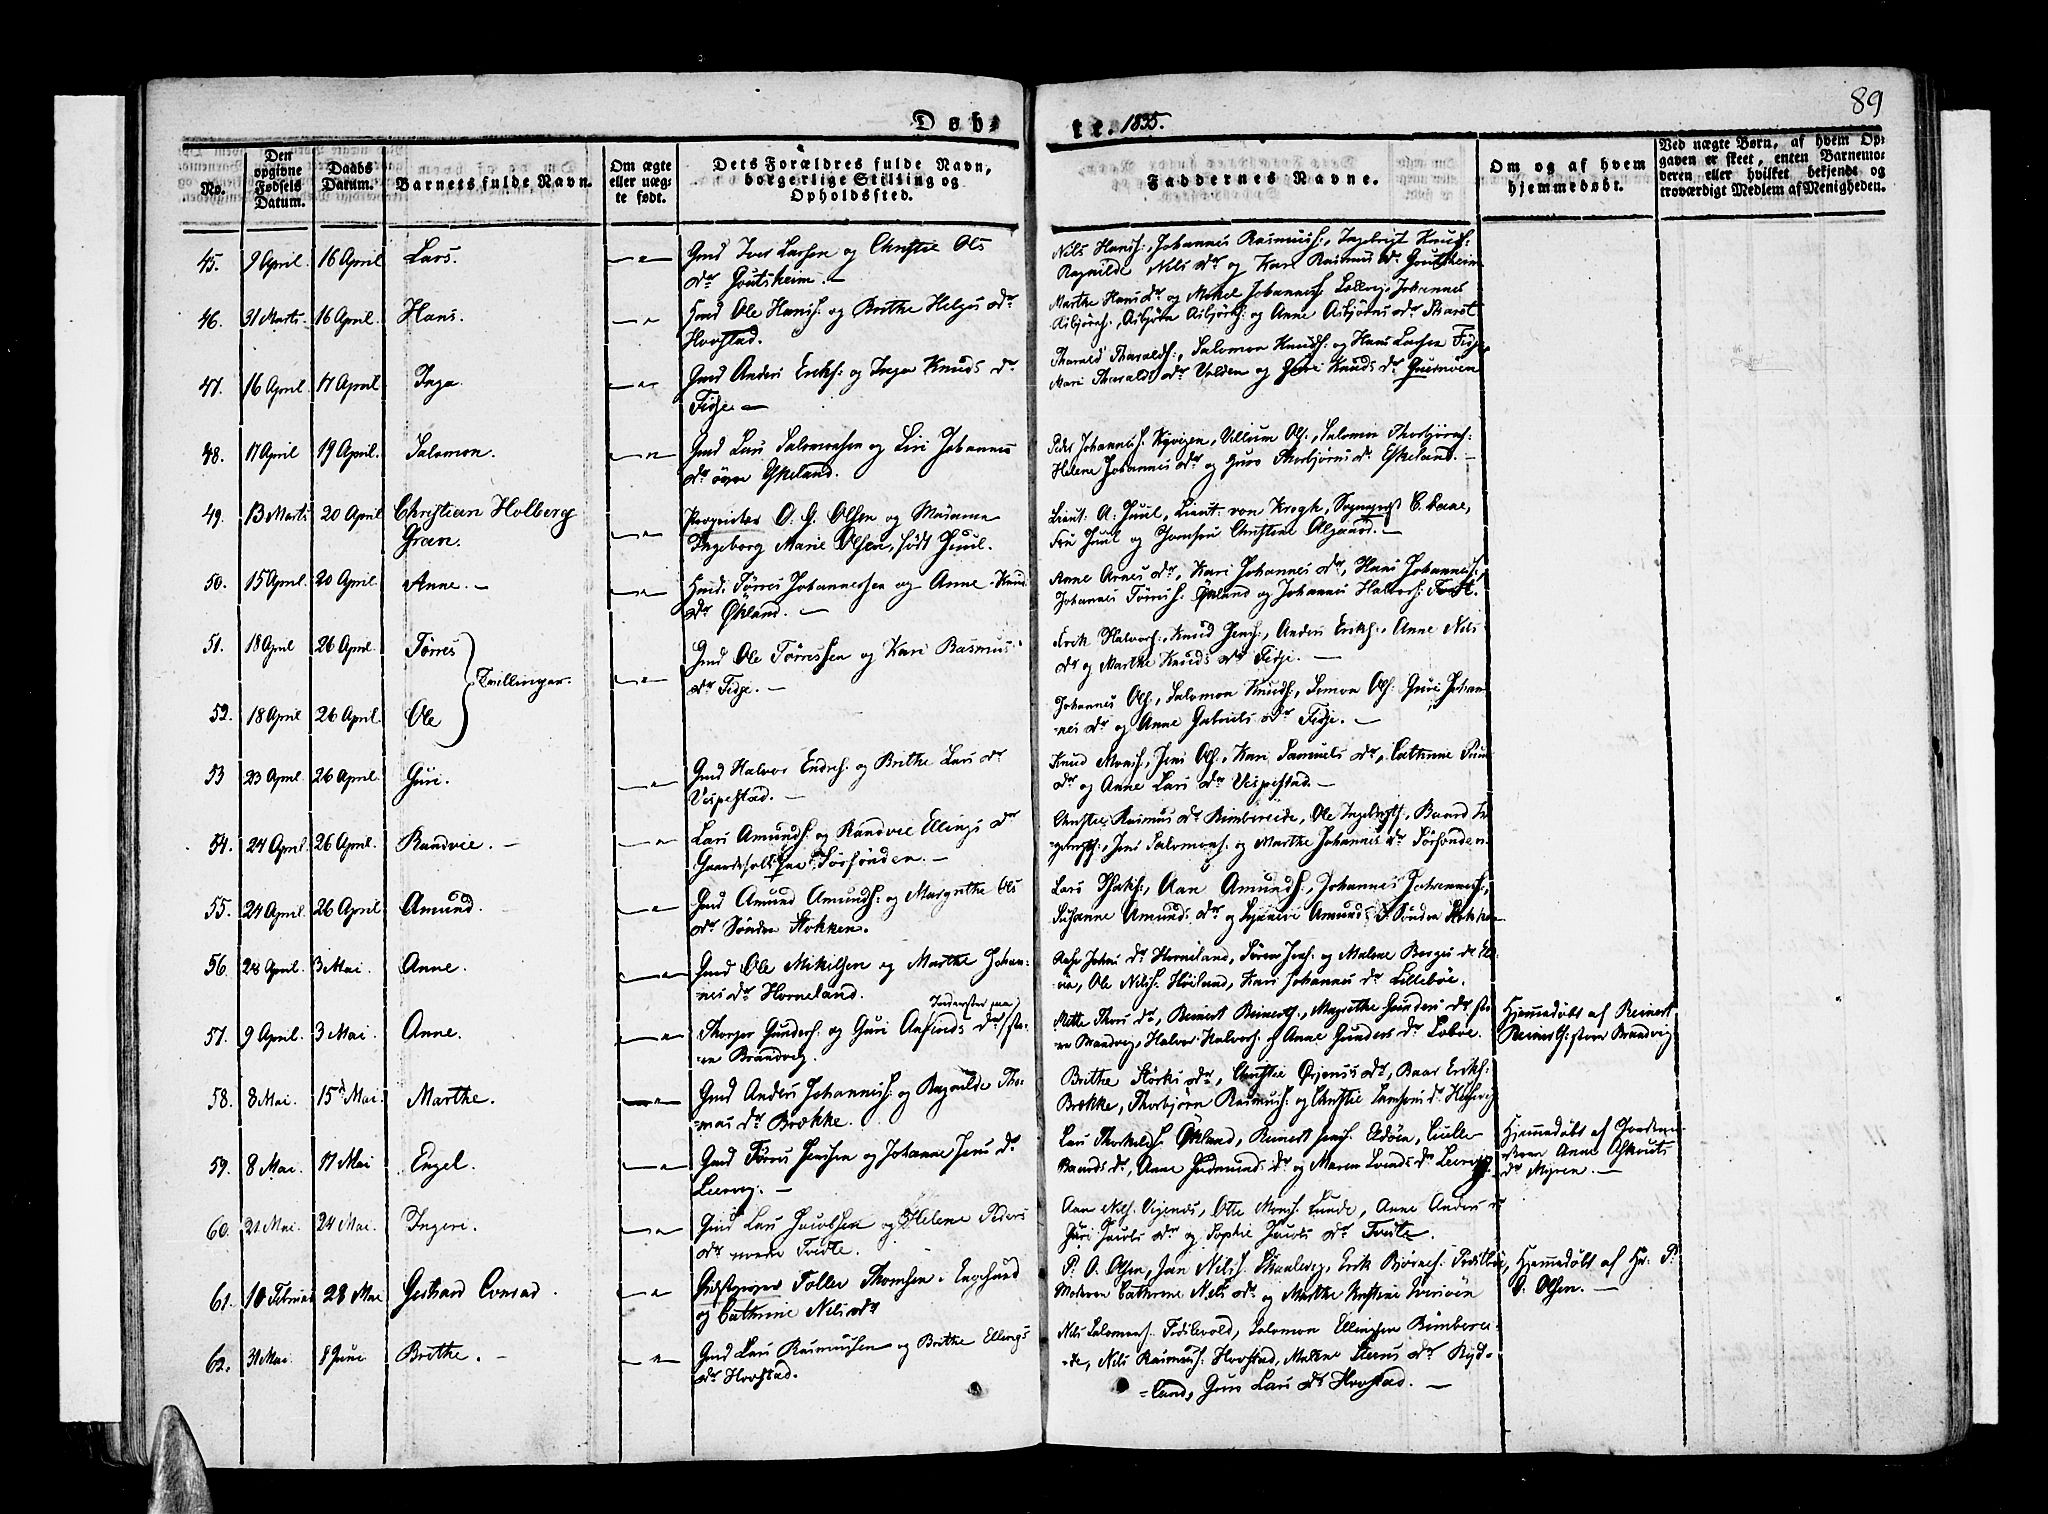 89
Døbte. 1835.
No.
Den opgivne Fødsels Datum.
Daabs Datum.
Barnets fulde Navn.
Om ægte eller uægte født.
Dets Forældres fulde Navn, borgerlige Stilling og Opholdssted.
Faddernes Navne.
Om og af hvem hjemmedøbt.
Ved uægte Børn, af hvem Opgaven er skeet, enten Barnemoderen eller hvilket bekjendt og troværdigt Medlem af Menigheden.
45. 9 April. 16 April Lars. —"— Gmd Iver Larsen og Christie Ols
dr Goutsheim. —
Nils Hansf:, Johannes Rasmusf:, Ingebrigt Knudf:
Ragnilde Nils dr og Kari Rasmus dr Goutsheim
46. 31 Marts. 16 April. Hans. —"— Gmd Ole Hansf: og Brithe Helges dr
Hovstad.
Marthe Hans dr og Mikel Johannesf:
Aibjørnf:, Asbjørn Asbjørnf: og Anne Asbjørns dr
47. 16 April. 17 April Inga —"— Gmd Anders Erikf: og Inga Knuds dr
Fidje. —
Tharald Tharaldf:, Salomon Knudf: og Hans Larsen Fidje,
Mari Tharalds dr Valden og Knuds dr
48. 17 April 19 April. Salomon. —"— Gmd Lars Salomonsen og Siri Johannes
dr øvre Eskeland.
Peder Johannesf:, Villum Olf., Salomon Thorbjørnf:
Helene Johannes dr og Guro Thorbjørns dr Eskeland. —
49. 13 Marts 20 April Christian Holberg
Gran. —"— Proprietær O. G. Olsen og Madame
Ingeborg Marie Olsen, født Juul.
Lieut: A. Juul, Lieut: von Krogh,
Fru Juul og Jomfru Christine —
50. 15 April. 20 April. Anne. — —"— Huusmd. Tørres Johannessen og Anne Knuds
dr Økland. —
Anne Arnes dr, Kari Johannes dr, Hans Johannesf:
Johannes Tørresf: Økland og Johannes Halvorf:
51. 18 April 26 April. Tørres
Tvillinger. —"— Gmd Ole Tørressen og Kari Rasmus
dr Fidje. —
Erik Halvorf:, Knud Jensf:, Anders Erikf:, Anne Nils
dr og Marthe Knuds dr Fidje. —
52. 18 April 26 April. Ole
Johannes Olf:, Salomon Knudf:, Simon Olf: Guri Johan-
nes dr og Anne Gabriels dr Fidje. —
53 23 April 26 April. Guri. —"— Gmd Halvor Endref: og Brithe Lars dr
Vespestad. —
Knud Monsf:, Jens Olf:, Kari Samuels dr, Cathrine
dr og Anne Lars dr Vespestad. —
54. 24 April. 26 April. Randvie. — —"— Lars Amundf: og Randvie Ellings dr
Gaardfolk paa Sørsønden. —
Christie Rasmus dr Bimbereide, Ole Ingebrigtf:, Baard In-
gebrigtf:, Jens Salomonf: og Marthe Johannes dr Sørsønden.
55. 24 April. 26 April. Amund. —"— Gmd Amund Amundf: og Margrethe Ols
dr Søndre Stokken.
Lars, Aan Amundf:, Johannes Johannesf:
Susanne Amunds dr og Amunds dr Søndre Stokken
56. 28 April. 3 Mai. Anne. —"— Gmd Ole Mikelsen og Marthe Johan-
nes dr Horneland.
Aase Johns dr Horneland, Søren og Malene
Ole Nilsf: Høiland, Kari Johannes dr Lillebøe.
57. 9 April. 3 Mai. Anne. —"— Thorger Gunderf: og Guri Aasmds dr (Inderster paa) sto-
re Brandvig.
Mette Thors dr, Reinert Reinertf:, Magrethe Gunders dr sto-
re Brandvig, Halvor Halvorf: og Anne Gunders dr Løbøe.
Hjemmedøbt af Reinert
Reinertf: store Brandvig
58. 8 Mai. 15d Mai. Marthe. —"— Gmd Anders Johannesf: og Ragnilde Tho-
mas dr Brække.
Brithe Størks dr, Christie Ørjens dr, Baar Erikf:
Brække, Thorbjørn Rasmusf: og Christie
59. 8 Mai. 17 Mai Engel. —"— Gmd Tørres Jensen og Johanne Jens dr
Leervig. —
Lars Thorkeldf: Økland, Reinert Jensf:
Baards dr, Anne Gudmunds dr og Maren Svends dr Leervig.
Hjemmedøbt af Jordemo-
deren Anne
dr Myren. —
60. 21 Mai. 24 Mai. Ingeri. —"— Gmd Lars Jacobsen og Helene Peders
dr nordre Tvedte.
Aan Nilf: Vigenes, Otte Monsf: Lunde, Anne Anders dr
Guri Jacobs dr og Sophie Jacobs dr Tvedte. —
61. 10 Februar 28 Mai Gerhard Conrad. —"— Gjæstgiver Toller Thomsen Engesund
og Cathrine Nils dr
P. O. Olsen, Jan Nilsf:, Erik Bjørnef:
Moderen Cathrine Nils dr og Marthe Kirstine
Hjemmedøbt af Hr. P.
O. Olsen. —
62. 31 Mai. 8 Juni. Brithe. — —"— Gmd Lars Rasmussen og Brithe Ellings
dr Hovstad.
Nils Salomonf:, Salomon Ellingsen Bimberei-
de, Nils Rasmusf: Hovstad, Malene dr Ryd-
land, Guri Lars dr Hovstad. —